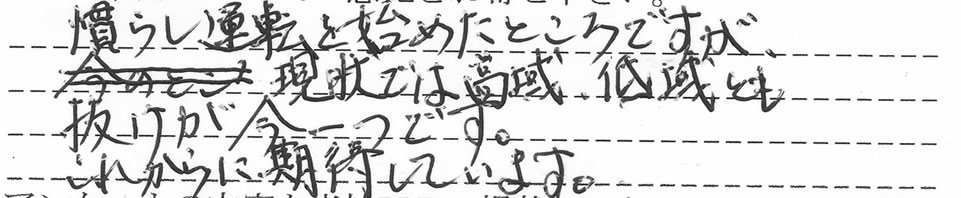 慣らし運転を始めたところですが、
今のところ 現状では高域、低域とも
抜けが今一つです。
これからに期待しています。